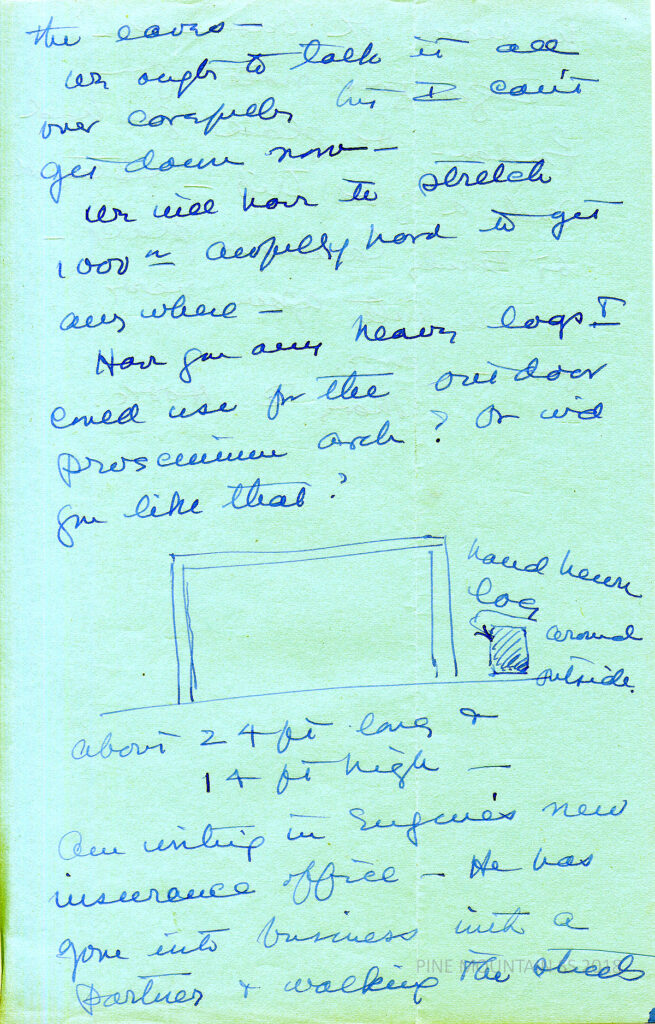 the eaves —
we ought to talk it all
over carefully but I can't
get down now —
we will have to stretch
1000 — awfully hard to get
any where —
Have you any heavy logs I
could use for the outdoor
proscenium arch? Or w'd
you like that?
hand hewn
log
around
outside.
about 24 ft long &
14 ft high —
Am writing in Eugene's new
insurance office — He has
gone into business with a
partner & walking the streets
PINE MOUNTAIN SS 2018